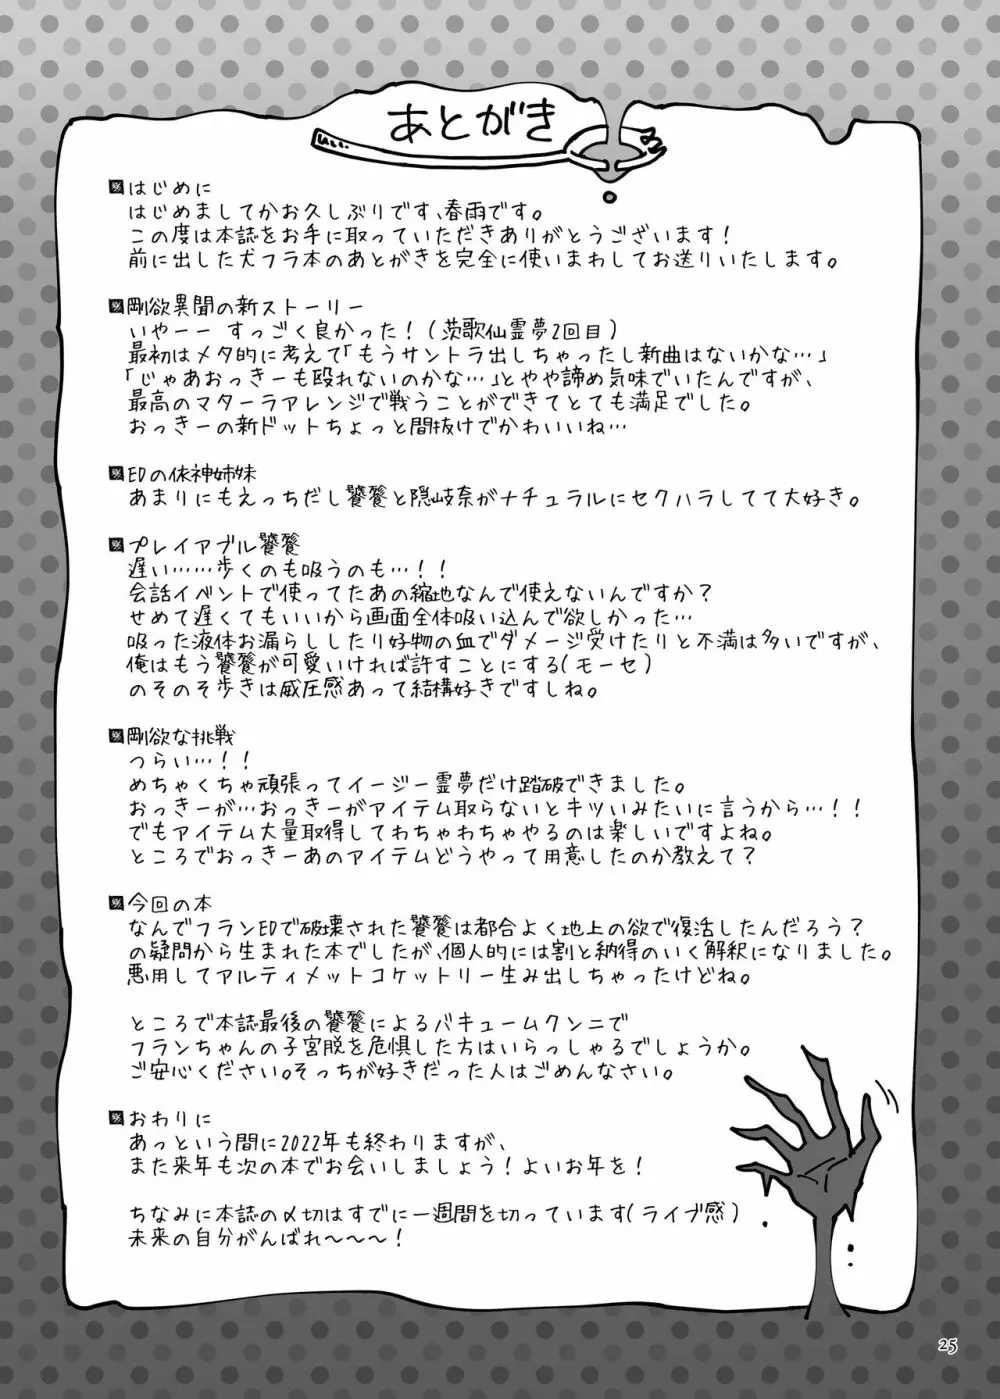 あとがき
はじめに
はじめましてかお久しぶりです、春雨です。
この度は本誌をお手に取っていただきありがとうございます!
前に出した犬フラ本のあとがきを完全に使いまわしてお送りいたします。
剛欲異聞の新ストーリー
いやーー すっごく良かった!(茨歌仙霊夢2回目)
最初はメタ的に考えて「もうサントラ出しちゃったし新曲はないかな…」
「じゃあおっきーも殴れないのかな…」とやや諦め気味でいたんですが、
最高のマターラアレンジで戦うことができてとても満足でした。
おっきーの新ドットちょっと間抜けでかわいいね…
EDの依神姉妹
あまりにもえっちだし饕餮と隠岐奈がナチュラルにセクハラしてて大好き。
プレイアブル饕餮
遅い……歩くのも吸うのも…!!
会話イベントで使ってたあの縮地なんで使えないんですか?
せめて遅くてもいいから画面全体吸い込んで欲しかった…
吸った液体お漏らししたり好物の血でダメージ受けたりと不満は多いですが、
俺はもう饕餮が可愛いければ許すことにする(モーセ)
のそのそ歩きは威圧感あって結構好きですしね。
剛欲な挑戦
つらい…!!
めちゃくちゃ頑張ってイージー霊夢だけ踏破できました。
おっきーが…おっきーがアイテム取らないとキツいみたいに言うから…!!
でもアイテム大量取得してわちゃわちゃやるのは楽しいですよね。
ところでおっきーあのアイテムどうやって用意したのか教えて?
今回の本
なんでフランEDで破壊された饕餮は都合よく地上の欲で復活したんだろう?
の疑問から生まれた本でしたが、個人的には割と納得のいく解釈になりました。
悪用してアルティメットコケットリー生み出しちゃったけどね。
ところで本誌最後の饕餮によるバキュームクンニで
フランちゃんの子宮脱を危惧した方はいらっしゃるでしょうか。
ご安心ください。そっちが好きだった人はごめんなさい。
おわりに
あっという間に2022年も終わりますが、
また来年も次の本でお会いしましょう!よいお年を!
ちなみに本誌の〆切はすでに一週間を切っています(ライブ感)
未来の自分がんばれ〜〜〜!
25